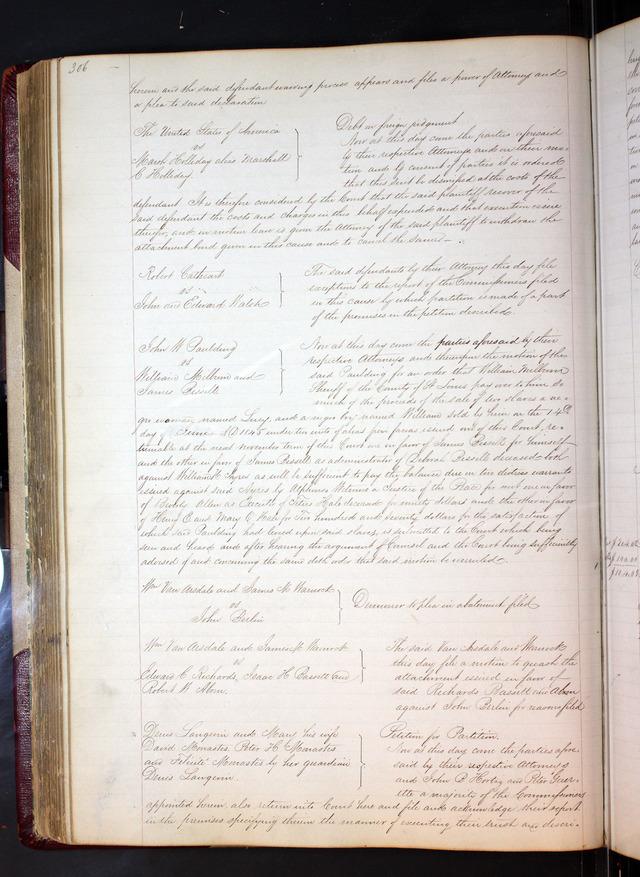 306
herein and the said defendant waiving process appears and files a power of Attorney and
a plea to said declaration
The United States of America
vs
Marsh Holliday alias Marshall
C Holliday
Debt on foreign judgment
Now at this day come the parties aforesaid
by their respective Attorneys and on their mo-
tion and by consent of parties it is ordered
that this suit be dismissed at the costs of the
defendant. It is therefore considered by the Court that the said plaintiff recover of the
said defendant the costs and charges in this behalf expended and that execution issue
therefor, and on motion leave is given the Attorney of the said plaintiff to withdraw the
attachment bond given in this cause and to cancel the same
Robert Cathcart
vs
John and Edward Walsh
The said defendants by their Attorney this day file
exceptions to the report of the Commissioners filed
in this cause by which partition is made of a part
of the premises in the petition described.
John W Paulding
vs
William Milburn and
James Bissell
Now at this day come the parties aforesaid by their
respective Attorneys and thereupon the motion of the
said Paulding for an order that William Milburn
Sheriff of the County of St Louis pay over to him so
much of the proceeds of the sale of two slaves a ne-
gro woman named Lucy, and a negro boy named William sold by him on the 14th
day of June AD 1845 under two writs of alias fieri facias issued out of this Court, re-
turnable at the next November term of this Court one in favor of James Bissell for himself
and the other in favor of James Bissell as administrator of Deborah Bissell deceased both
against William Ayres as will be sufficient to pay the balance due in two distress warrants
issued against said Ayres by Alpheus a Justice of the Peace for one in favor
of Allen as Executor of Hale deceased for ninety dollars and the other in favor
of Henry C and Mary C for Two hundred and seventy dollars for the satisfaction of
which said Paulding had levied upon said slaves, is submitted to the Court which being
seen and heard and after hearing the argument of Counsel and the Court being sufficiently
advised of and concerning the same doth order that said motion be overruled.
Wm Van Arsdale and James M Warnock
vs
John Perlin
Demurrer to plea in abatement filed
Wm Van Arsdale and James M Warnock
vs
Edward C Richards, Isaac H Bassett and
Robert W
The said Van Arsdale and Warnock
this day file a motion to quash the
attachment issued in favor of
said Richards Bassett and
against John Perlin for reasons filed
Denis Langevin and Mary his wife
David Monastes Peter H Monastes
and Felicité Monastes by her guardian
Denis Langevin.
Petition for Partition.
Now at this day come the parties afore
said by their respective Attorneys
and John P and Peter
a majority of the Commissioners
appointed herein also return into Court here and file and acknowledge their report
in the premises specifying therein the manner of executing their trust and descri-